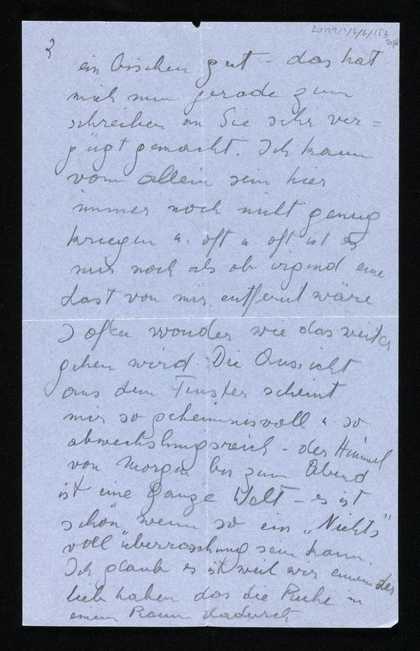 3
ein bisschen gut – das hat
mich nun gerade zum
schreiben an Sie sehr ver=
gügt gemacht. Ich kann
vom allein sein hier
immer noch nicht genug
kriegen u. oft u oft ist es
mir noch als ob irgend eine
Last von mir entfernt wäre
I often wonder wie das weiter
gehen wird. Die Aussicht
aus dem Finster scheint
mir so geheimnisvoll u so
abwechslungsreich – der Himmel
von Morgen bis zum Abend
ist eine ganze Welt – es ist
schön wenn so ein „Nichts"
voll überraschung sein kann.
Ich glaub es ist weil wir einander
lieb haben das die Ruhe in
einem Raum dadurch